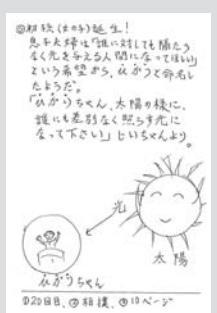 ◎初孫(女の子)誕生!
息子夫婦は「誰に対しても隔たり
なく光を与える人間になってほしい」
という希望から、ひかりと命名し
たようだ。
「ひかりちゃん、太陽の様に、
誰にも差別なく照らす光に
なって下さい」じいちゃんより。
光
太陽
ひかりちゃん
①20回目、②相模、③10ページ